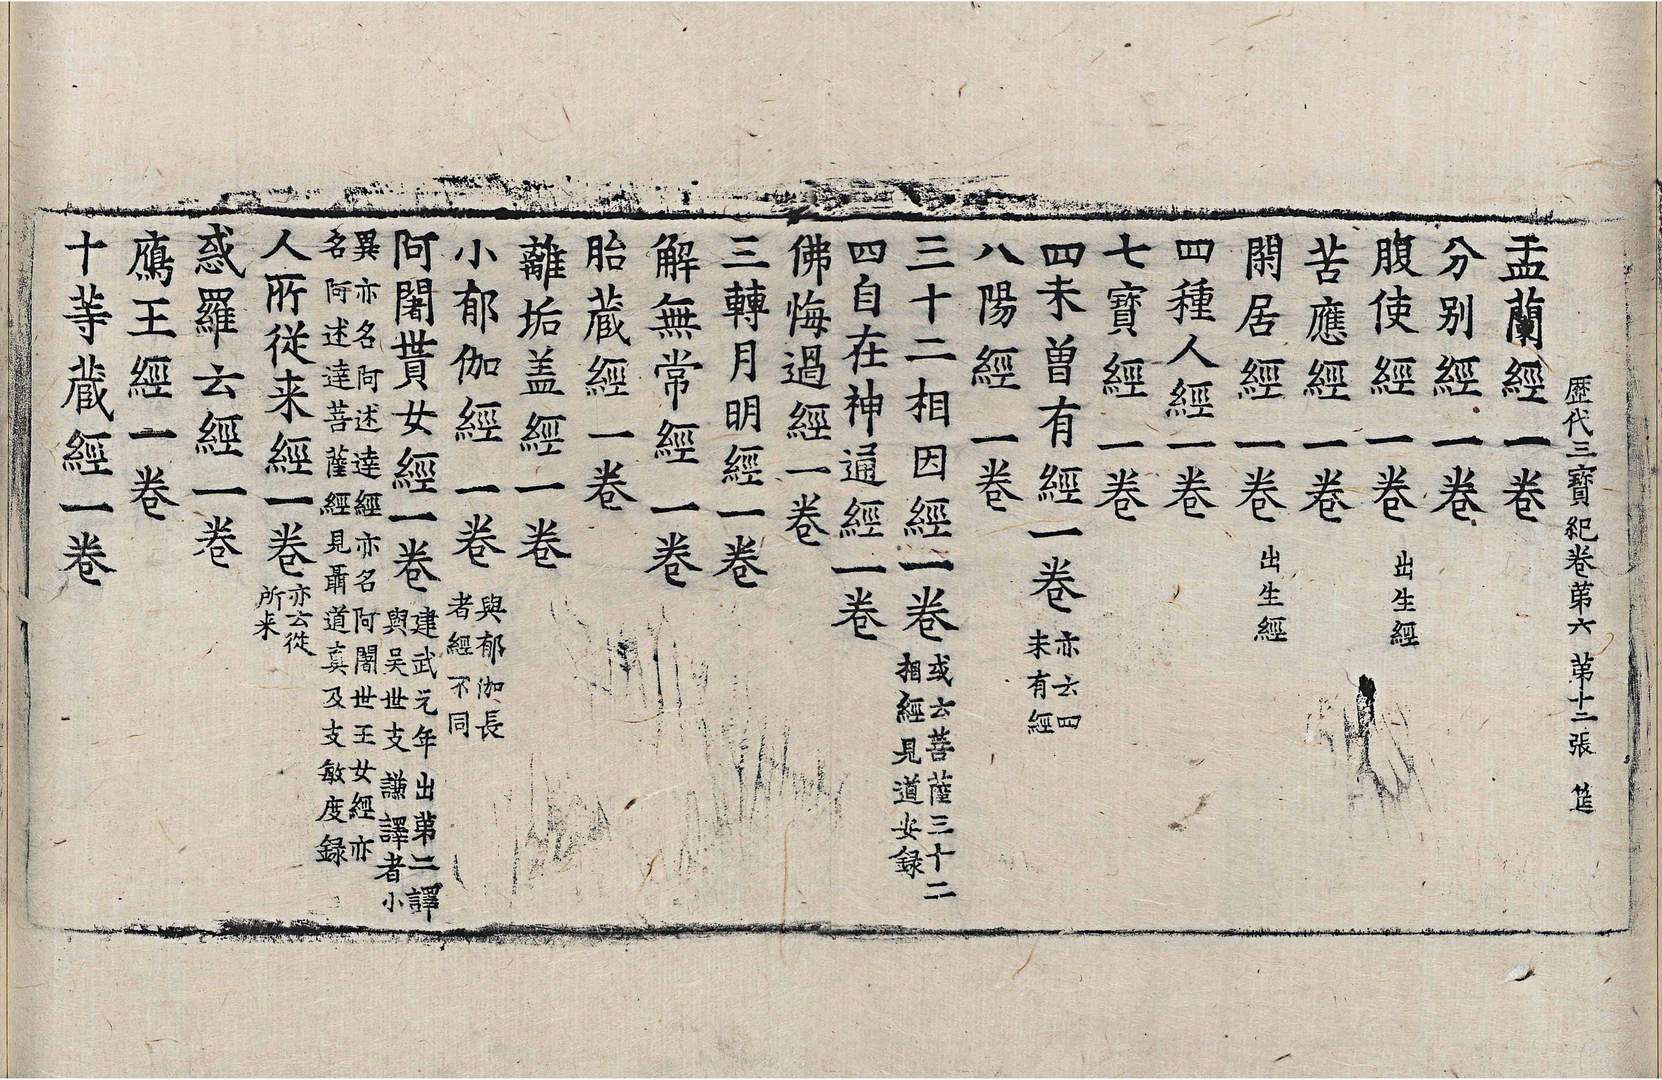 歷代三寶紀卷第六　第十二張　筵
盂蘭經一卷
分别經一卷
腹使經一卷　出生經
苦應經一卷
閑居經一卷　出生經
四種人經一卷
七寶經一卷
四未曽有經一卷　亦云四
未有經
八陽經一卷
三十二相因經一卷　或云菩薩三十二
相經見道安録
四自在神通經一卷
佛悔過經一卷
三轉月明經一卷
解無常經一卷
胎蔵經一卷
離垢盖經一卷
小郁伽經一卷　與郁伽長
者經不同
阿闍世貰女經一卷　建武元年出第二譯
與吴世支謙譯者小
異亦名阿述達經亦名阿闍世王女經亦
名阿述達菩薩經見聶道真及支敏度録
人所従来經一卷　亦云従
所来
惑羅云經一卷
鴈王經一卷
十等蔵經一卷